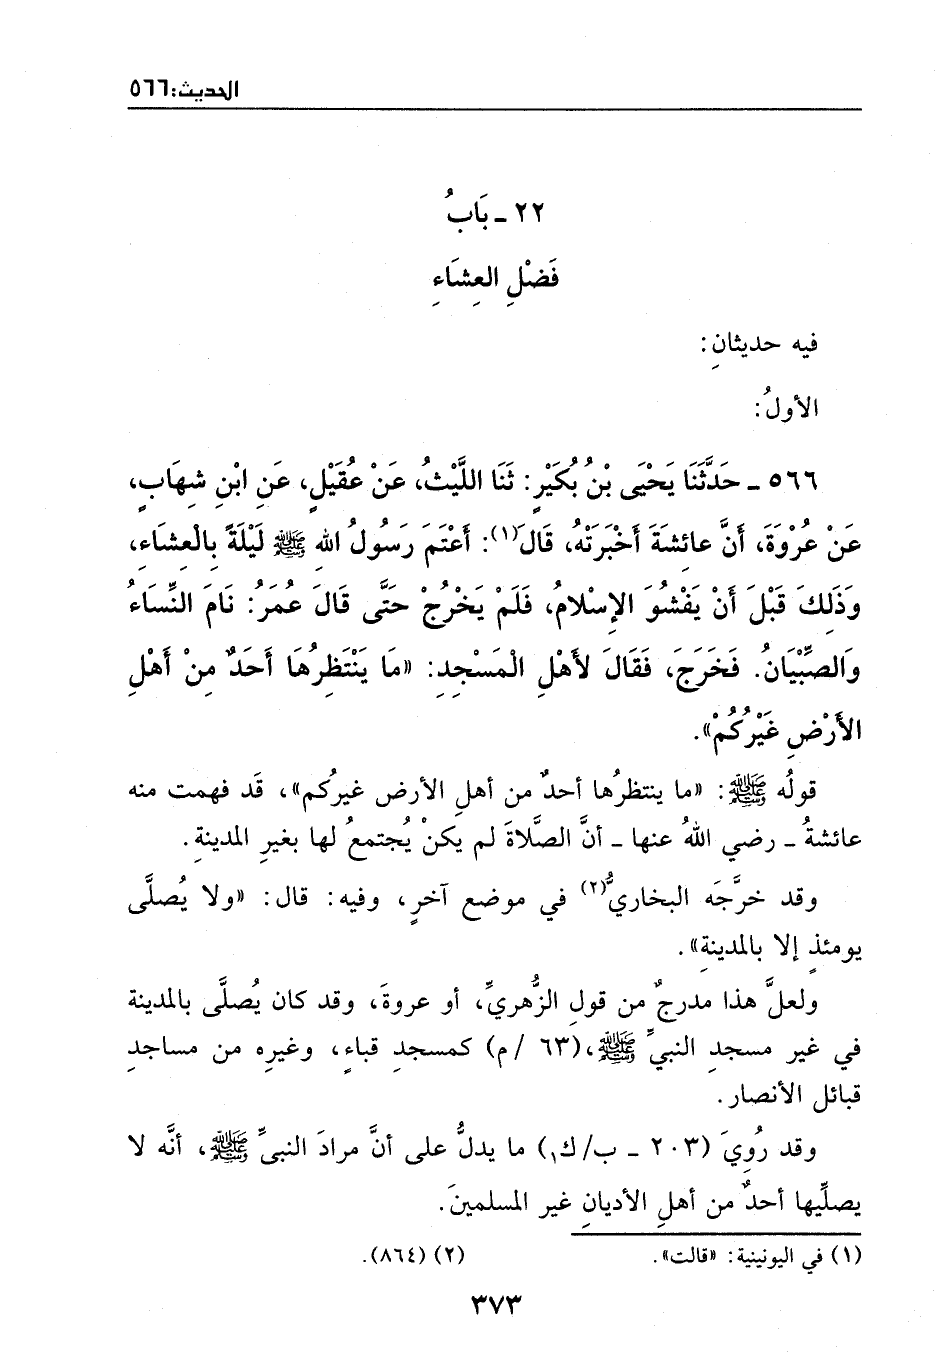 الحديث: ٥٦٦
٢٢ ـ بَابُ
فَضْلِ العِشَاءِ
فيه حديثانِ:
الأولُ:
٥٦٦ ـ حَدَّثَنَا يَحْيَى بْنُ بُكَيْرٍ: ثَنَا اللَّيْثُ، عَنْ عُقَيْلٍ، عَنِ ابْنِ شِهَابٍ،
عَنْ عُرْوَةَ، أَنَّ عَائِشَةَ أَخْبَرَتْهُ، قَالَ(١): أَعْتَمَ رَسُولُ اللهِ ﷺ لَيْلَةً بِالْعِشَاءِ،
وَذَلِكَ قَبْلَ أَنْ يَفْشُوَ الإِسْلامُ، فَلَمْ يَخْرُجْ حَتَّى قَالَ عُمَرُ: نَامَ النِّسَاءُ
وَالصِّبْيَانُ. فَخَرَجَ، فَقَالَ لأَهْلِ الْمَسْجِدِ: «مَا يَنْتَظِرُهَا أَحَدٌ مِنْ أَهْلِ
الأَرْضِ غَيْرُكُمْ».
قولُه ﷺ: «ما ينتظرُها أحدٌ من أهلِ الأرض غيرُكم»، قَد فهمت منه
عائشةُ ـ رضي اللهُ عنها ـ أنَّ الصَّلاةَ لم يكنْ يُجتمعُ لها بغيرِ المدينةِ.
وقد خرَّجَه البخاريُّ(٢) في موضع آخرٍ، وفيه: قال: «ولا يُصلَّى
يومئذٍ إلا بالمدينةِ».
ولعلَّ هذا مدرجٌ من قولِ الزُّهريِّ، أو عروةَ، وقد كان يُصلَّى بالمدينة
في غير مسجدِ النبيِّ ﷺ،(٦٣ /م) كمسجدِ قباءٍ، وغيرِه من مساجدِ
قبائل الأنصار.
وقد رُوِيَ (٢٠٣ ـ ب/ك١) ما يدلُّ على أنَّ مرادَ النبيِّ ﷺ، أنَّه لا
يصلِّيها أحدٌ من أهلِ الأديانِ غير المسلمينَ.
(١) في اليونينية: «قالت». (٢) (٨٦٤).
٣٧٣